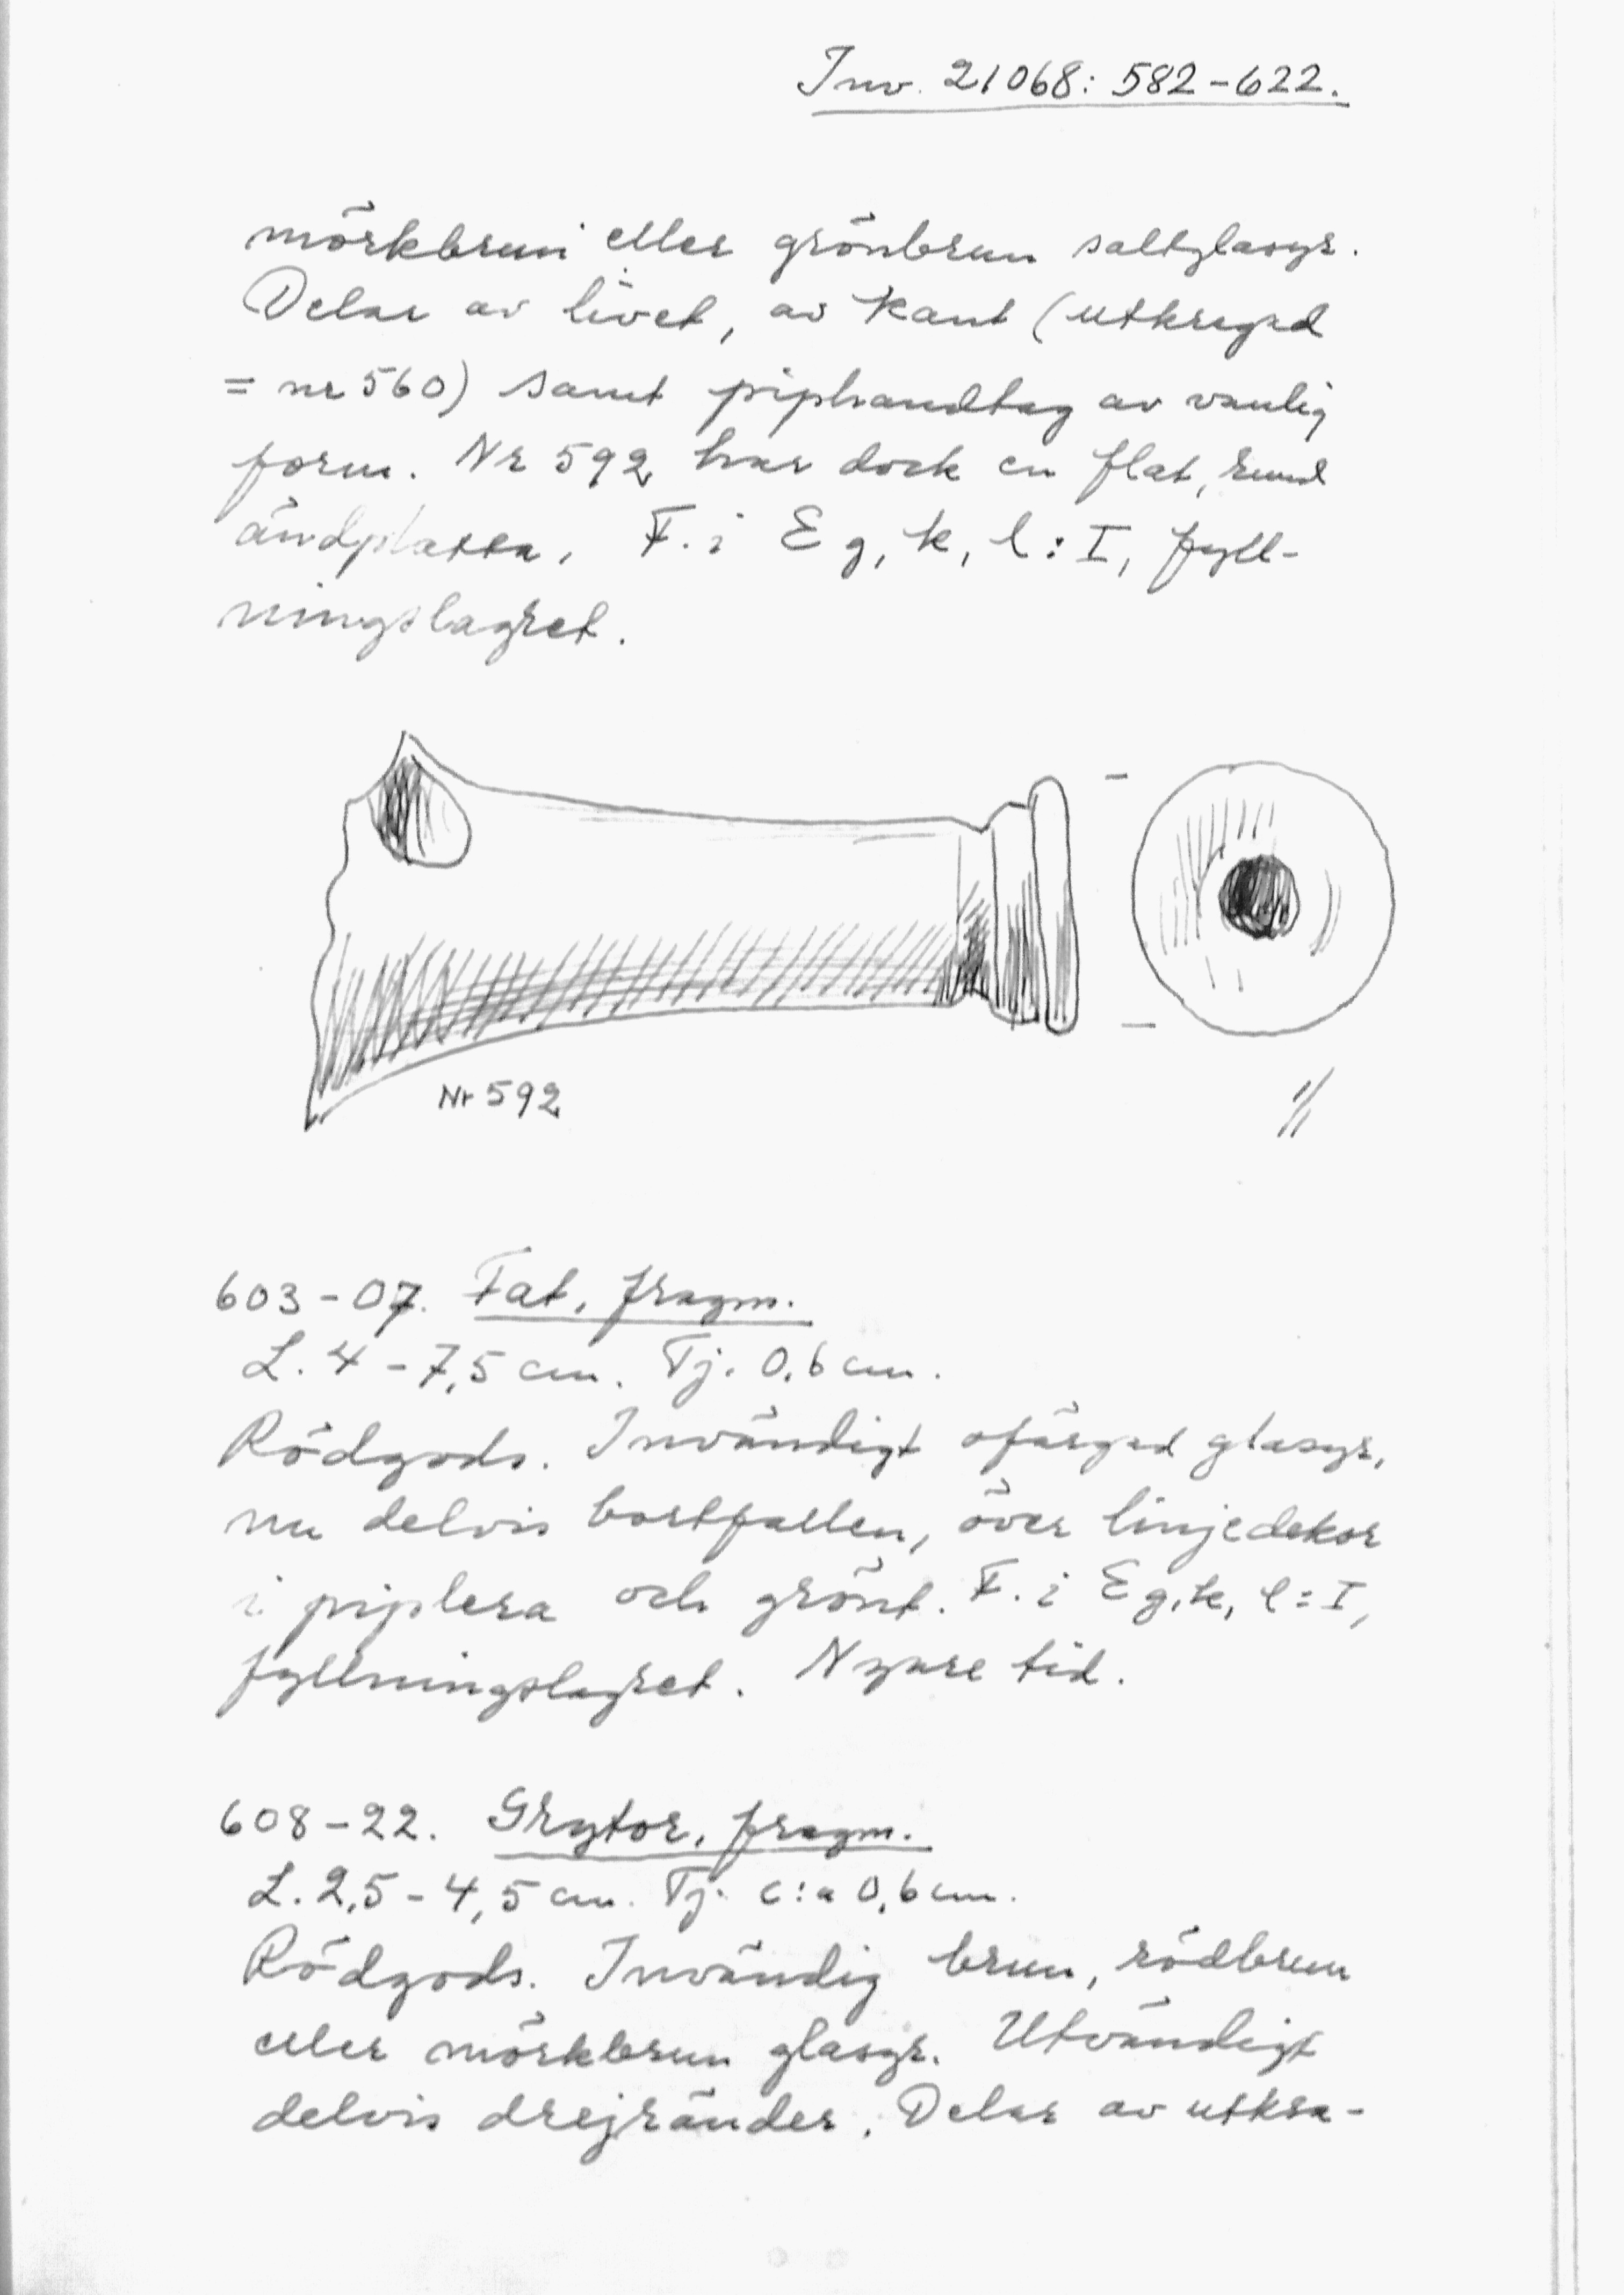 Inv. 21068: 582-622.
mörkbrun eller grönbrun saltglasyr.
Delar av livet, av kant (utkragad
= nr 560) samt piphandtag av vanlig
form. Nr 592 har dock en flat, rund
ändplatta. F. i E g, k, l: I, fyll-
ningslagret.
Nr 592
1/1
603-07. Fat, fragm.
L. 4-7,5 cm. Tj. 0,6 cm.
Rödgods. Invändigt ofärgad glasyr,
nu delvis bortfallen, över linjedekor
i piplera och grönt. F. i E g, k, l: I,
fyllningslagret. Nyare tid.
608-22. Grytor, fragm.
L. 2,5-4,5 cm. Tj. c:a 0,6 cm.
Rödgods. Invändig brun, rödbrun
eller mörkbrun glasyr. Utvändigt
delvis drejränder. Delar av utkra-